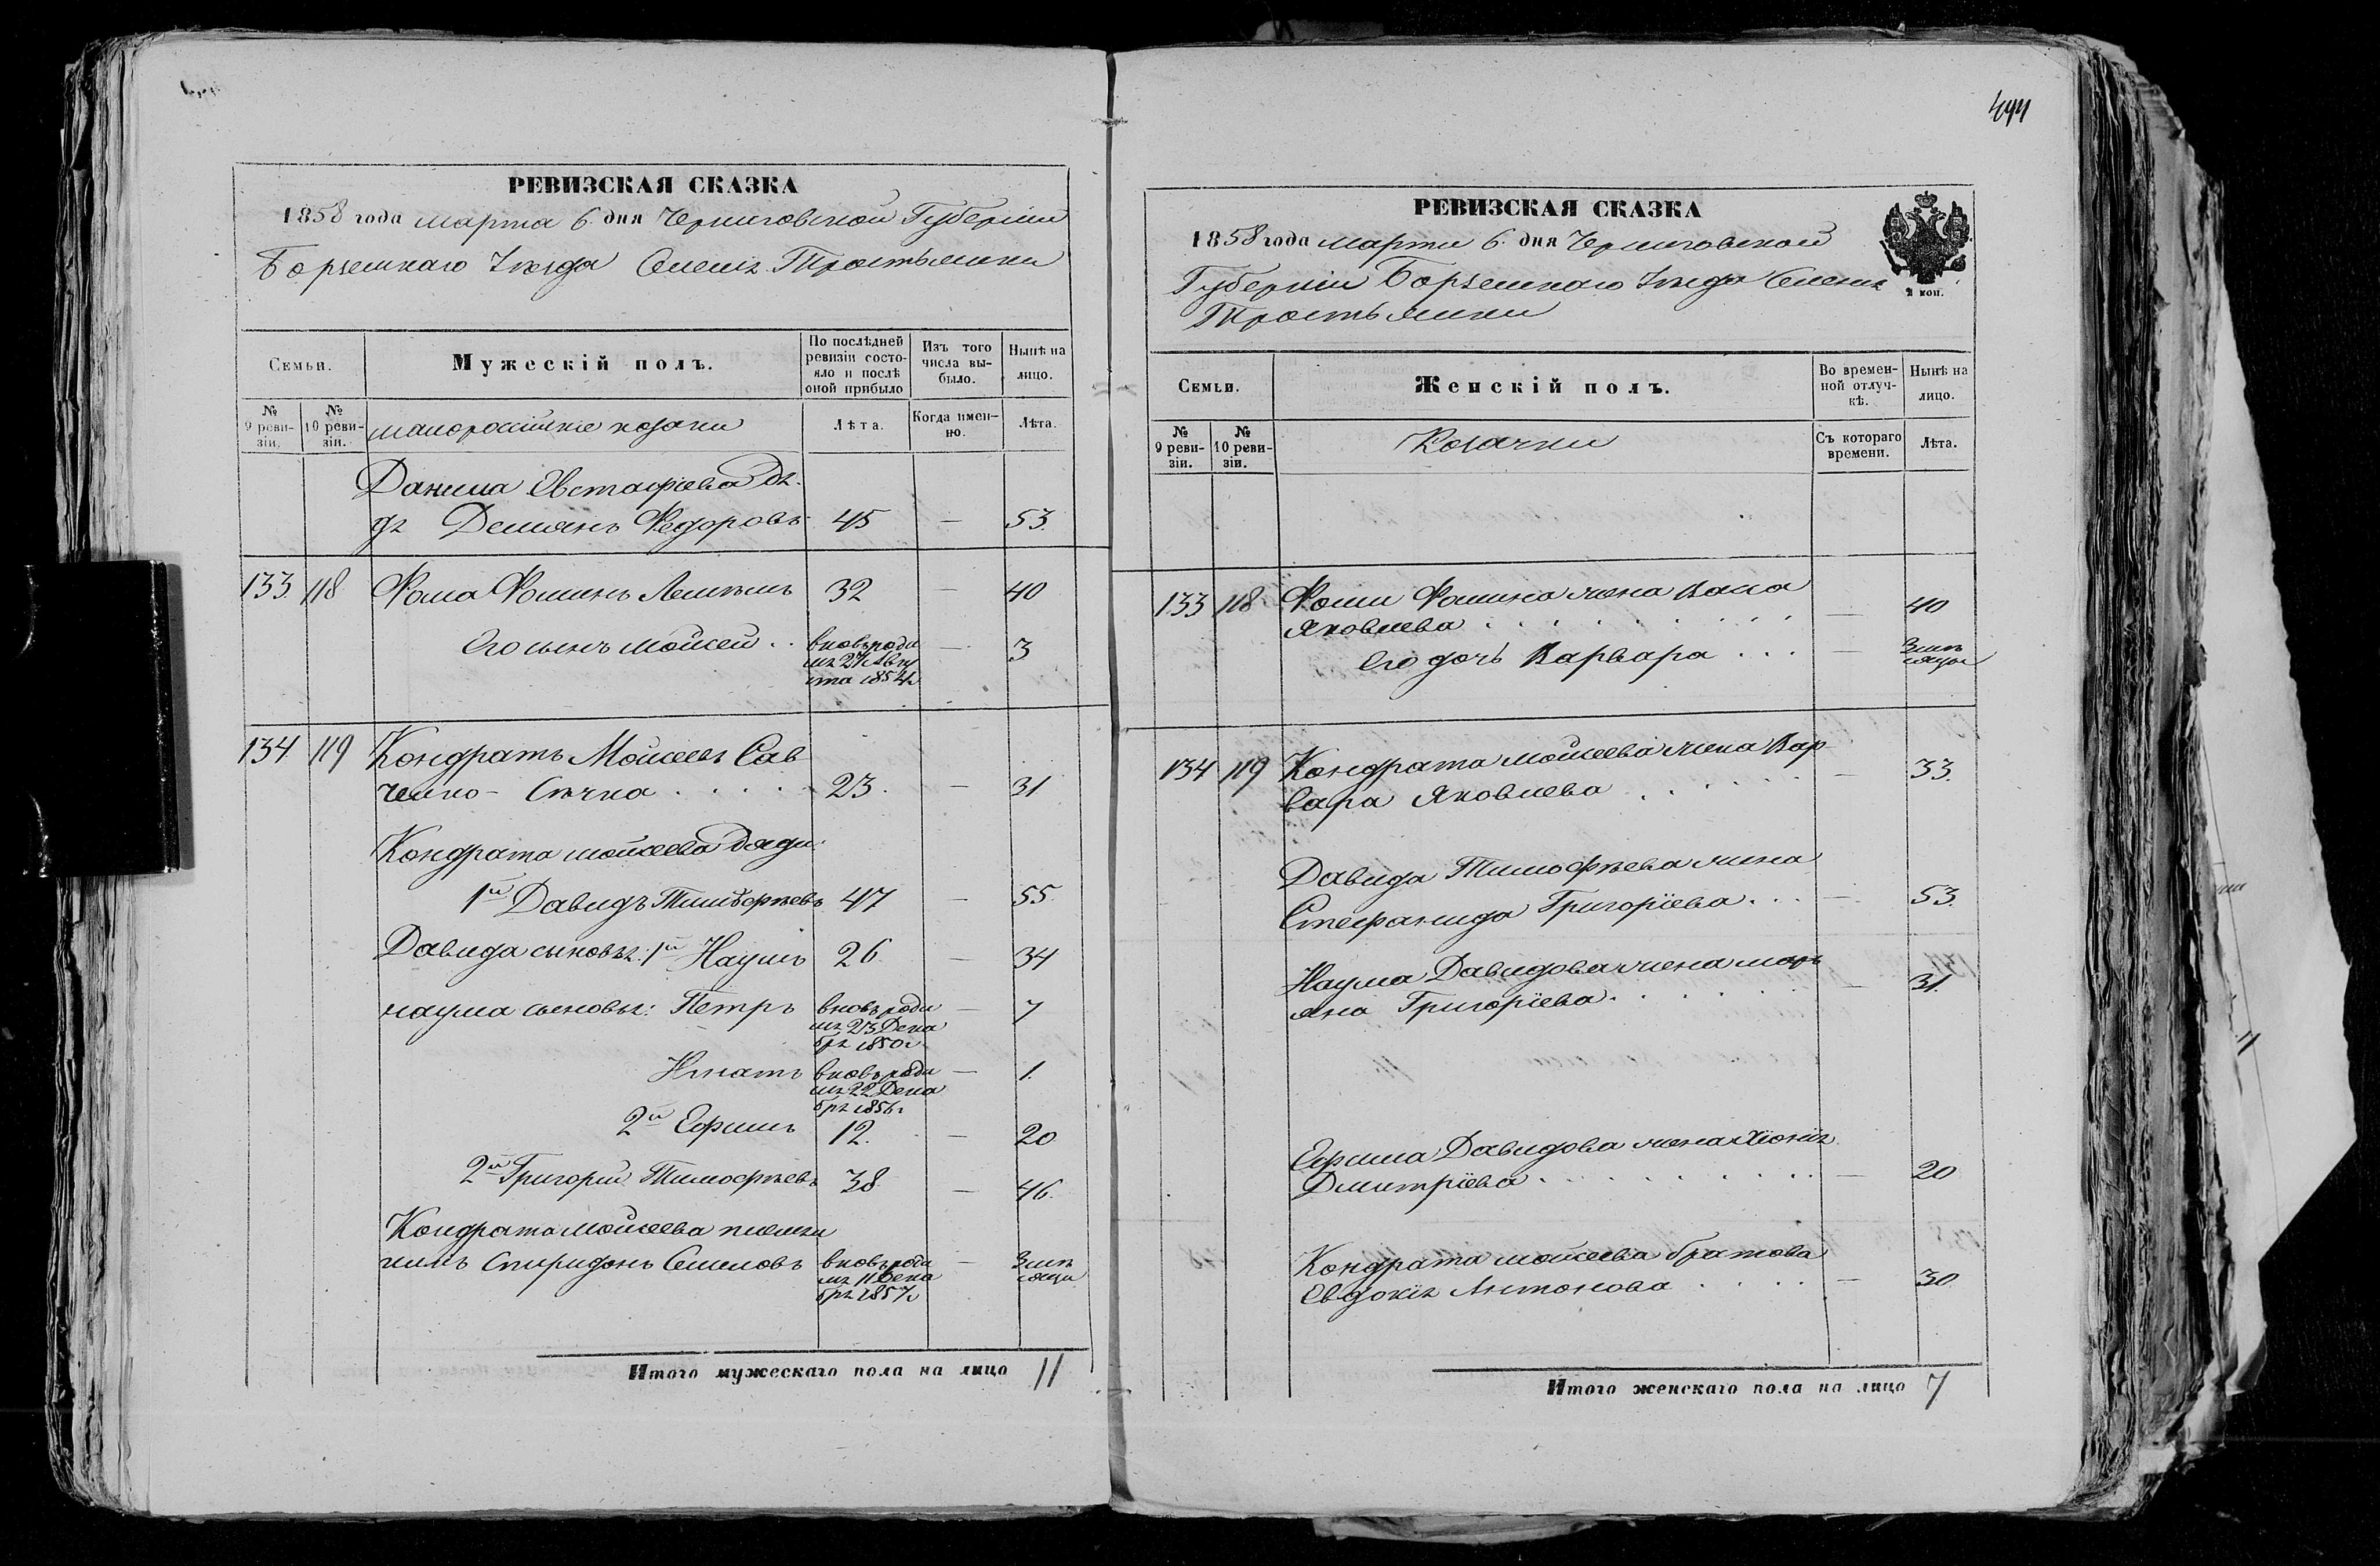 494
РЕВИЗСКАЯ СКАЗКА
1858 года марта 6 дня Черниговской Губерніи
Борзенскаго Уѣзда Селенія Тростьянки
Семьи.
Мужескій полъ.
По послѣдней ревизіи состояло и послѣ оной прибыло
Изъ того числа выбыло.
Нынѣ на лицо.
№ 9 ревизіи.
№ 10 ревизіи.
малороссійскіе козаки
Лѣта.
Когда именно.
Лѣта.
Данила Евстафіева дѣ-
дъ Демянъ Федоровъ 45 — 53.
133. 118 Фома Фоминъ 32 — 40
Его сынъ Мойсей .. вновь роди — 3
лъ 27 Авгу
ста 1854г.
134 119 Кондратъ Мойсеевъ Сав
ченко - Сѣчка . . . . 23. — 31
Кондрата мойсеева дяди:
1й Давидъ Тимофѣевъ 47 — 55.
Давида сыновья: 1й Наумъ 26 — 34
наума сыновья: Петръ вновь роди — 7
лъ 23 Дека
бря 1850г.
Игнатъ вновь роди — 1.
лъ 22 Дека
бря 1856г
2й Ефимъ 12. — 20
2й Григорій Тимофѣевъ 38 — 46.
Кондрата Мойсеева племян
никъ Спиридонъ Семеновъ вновь роди — 3 мѣ
лъ 11 Дека сяца
бря 1857г
Итого мужескаго пола на лицо 11
РЕВИЗСКАЯ СКАЗКА
1858 года марта 6 дня Черниговской
Губерніи Борзенскаго Уѣзда Селенія
Тростьянки
2 коп.
Семьи.
Женскій полъ.
Во временной отлучкѣ.
Нынѣ на лицо.
№ 9 ревизіи.
№ 10 ревизіи.
Козачки
Съ котораго времени.
Лѣта.
133 118 Фомы Фомина жена Васса
Яковлева . . . . . . . — 40
Его дочь Варвара ... — 3 мѣ
сяца
134 119 Кондрата мойсеева жена Вар
вара Яковлева . . . . . — 33.
Давида Тимофѣева жена
Стефанида Григоріева ... — 53.
Наума Давидова жена марь
яна Григоріева . . . . . — 31.
Ефима Давидова жена Хіонія
Дмитріева . . . . . . . — 20
Кондрата мойсеева братова
Евдокія Антонова . . . . — 30
Итого женскаго пола на лицо 7